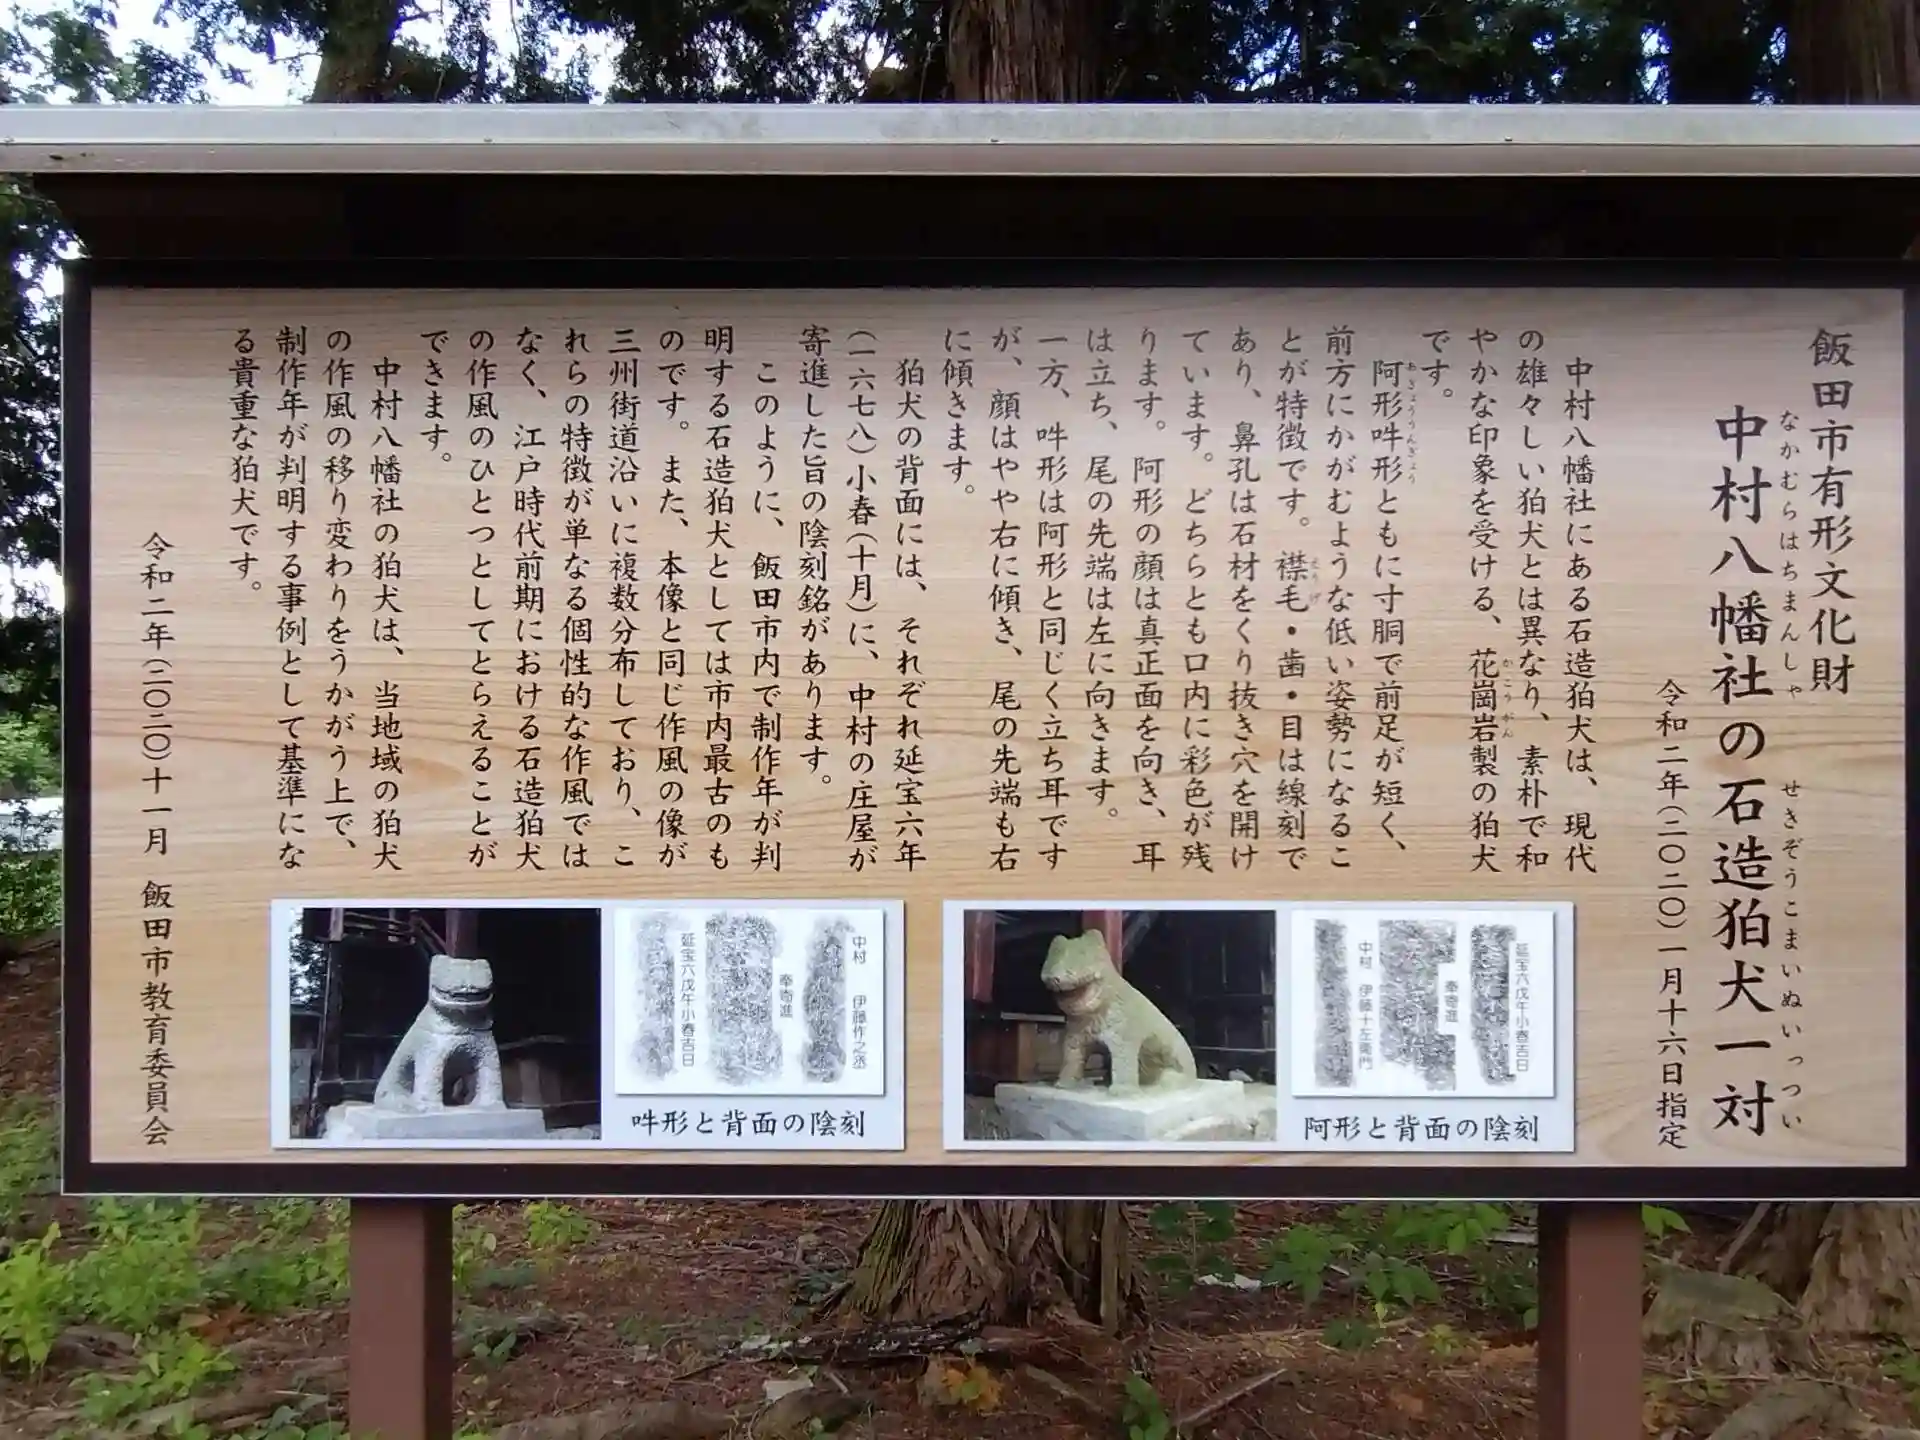 飯田市有形文化財
中村八幡社の石造狛犬一対
なかむらはちまんしゃ せきぞうこまいぬいっつい
令和二年(二〇二〇)一月十六日指定
中村八幡社にある石造狛犬は、現代
の雄々しい狛犬とは異なり、素朴で和
やかな印象を受ける、花崗岩製の狛犬
かこうがん
です。
阿形吽形ともに寸胴で前足が短く、
あぎょううんぎょう
前方にかがむような低い姿勢になるこ
とが特徴です。襟毛・歯・目は線刻で
えりげ
あり、鼻孔は石材をくり抜き穴を開け
ています。どちらとも口内に彩色が残
ります。阿形の顔は真正面を向き、耳
は立ち、尾の先端は左に向きます。
一方、吽形は阿形と同じく立ち耳です
が、顔はやや右に傾き、尾の先端も右
に傾きます。
狛犬の背面には、それぞれ延宝六年
(一六七八)小春(十月)に、中村の庄屋が
寄進した旨の陰刻銘があります。
このように、飯田市内で制作年が判
明する石造狛犬としては市内最古のも
のです。また、本像と同じ作風の像が
三州街道沿いに複数分布しており、こ
れらの特徴が単なる個性的な作風では
なく、江戸時代前期における石造狛犬
の作風のひとつとしてとらえることが
できます。
中村八幡社の狛犬は、当地域の狛犬
の作風の移り変わりをうかがう上で、
制作年が判明する事例として基準にな
る貴重な狛犬です。
令和二年(二〇二〇)十一月 飯田市教育委員会
延宝六戊午小春吉日
奉寄進
中村 伊藤十左衛門
阿形と背面の陰刻
中村 伊藤作之丞
奉寄進
延宝六戊午小春吉日
吽形と背面の陰刻